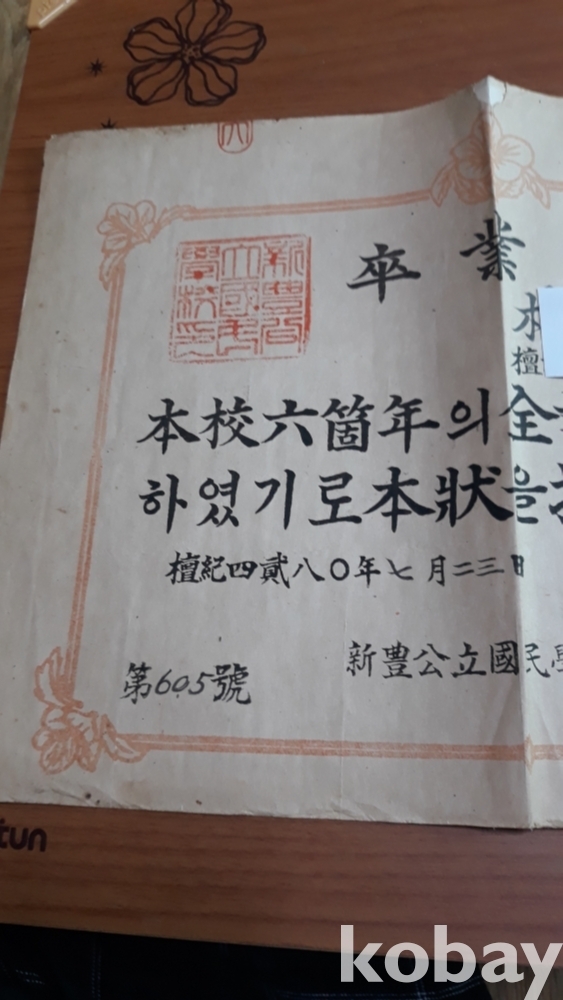 六
新豊公
立國民
學校印
卒業
檀
本校六箇年의全
하였기로本狀을
檀紀四貳八〇年七月二三日
新豊公立國民學
第605號
tun
kobay